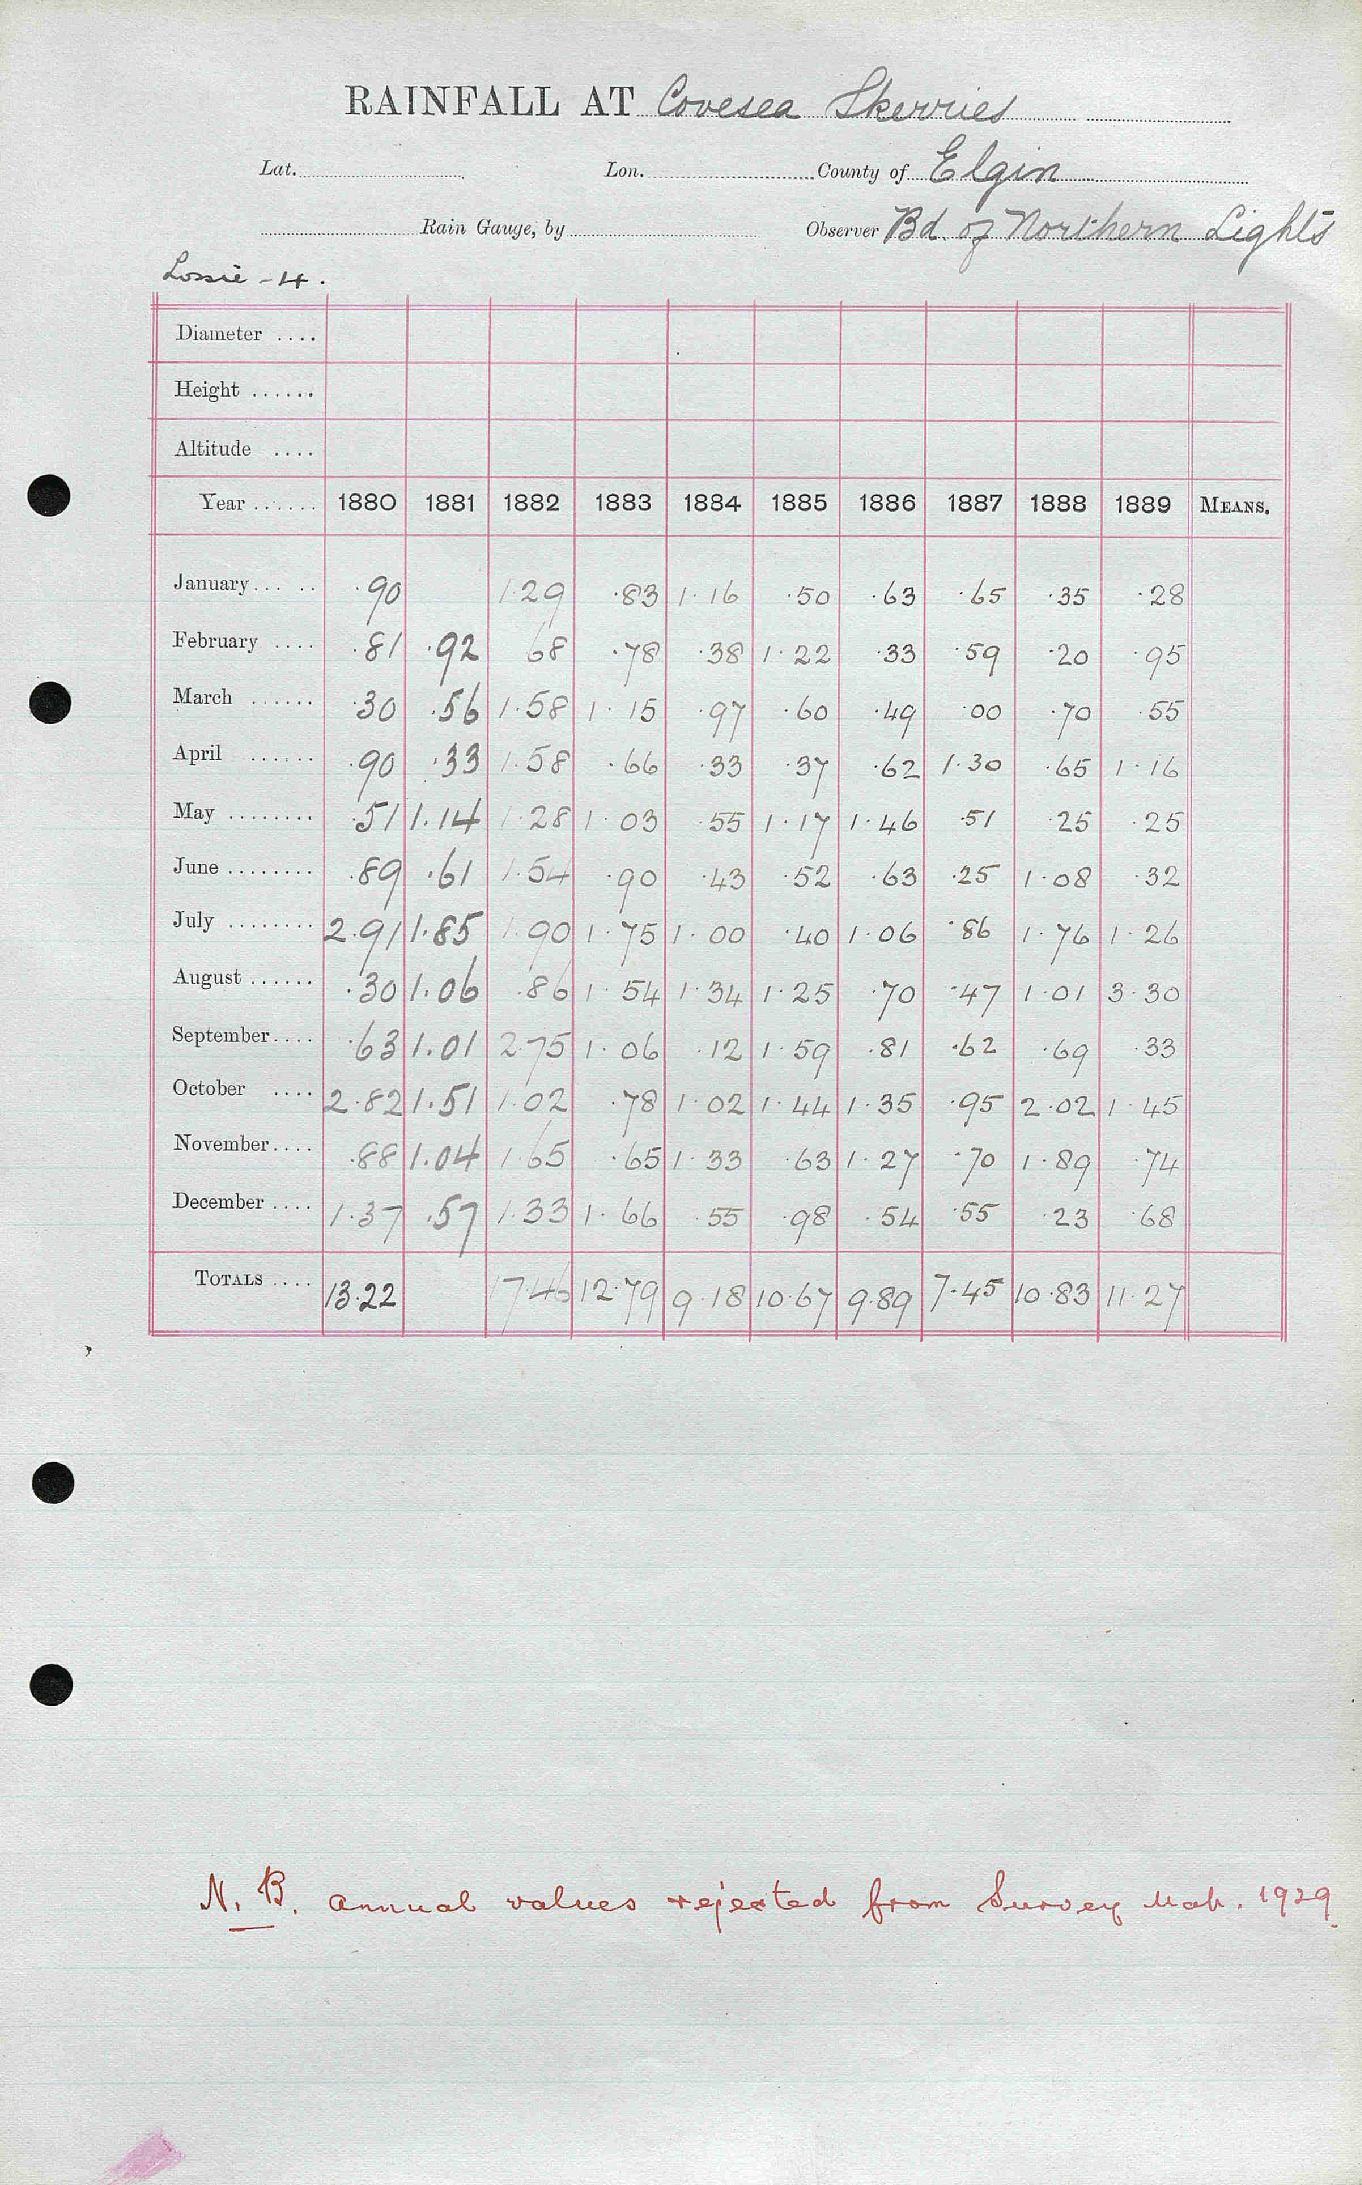 RAINFALL AT Covesea Skerries
Lat. Lon. County of Elgin
Rain Gauge, by Observer Bd. of Northern Lights
Lossie - 4.
Diameter ....
Height ......
Altitude ....
Year ...... 1880 1881 1882 1883 1884 1885 1886 1887 1888 1889 MEANS.
January... .. .90 1.29 .83 1.16 .50 .63 .65 .35 .28
February .... .81 .92 68 .78 .38 1.22 .33 .59 .20 .95
March ...... .30 .56 1.58 1.15 .97 .60 .49 .00 .70 .55
April ...... .90 .33 1.58 .66 .33 .37 .62 1.30 .65 1.16
May ........ .51 1.14 1.28 1.03 .55 1.17 1.46 .51 .25 .25
June ........ .89 .61 1.54 .90 .43 .52 .63 .25 1.08 .32
July ........ 2.91 1.85 1.90 1.75 1.00 .40 1.06 .86 1.76 1.26
August ...... .30 1.06 .86 1.54 1.34 1.25 .70 .47 1.01 3.30
September.... .63 1.01 2.75 1.06 .12 1.59 .81 .62 .69 .33
October .... 2.82 1.51 1.02 .78 1.02 1.44 1.35 .95 2.02 1.45
November.... .88 1.04 1.65 .65 1.33 .63 1.27 .70 1.89 .74
December .... 1.37 .57 1.33 1.66 .55 .98 .54 .55 .23 .68
TOTALS .... 13.22 17.46 12.79 9.18 10.67 9.89 7.45 10.83 11.27
N.B. Annual values rejected from Survey Map. 1929